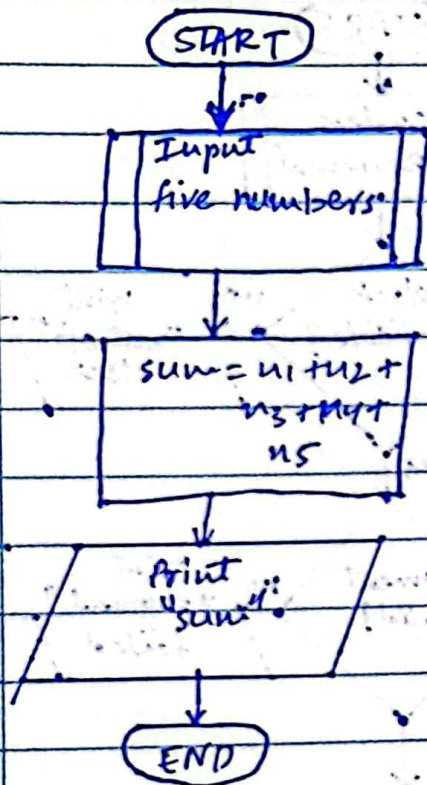 START
Input
five numbers
sum = n1 + n2 +
n3 + n4 +
n5
Print
"sum"
END